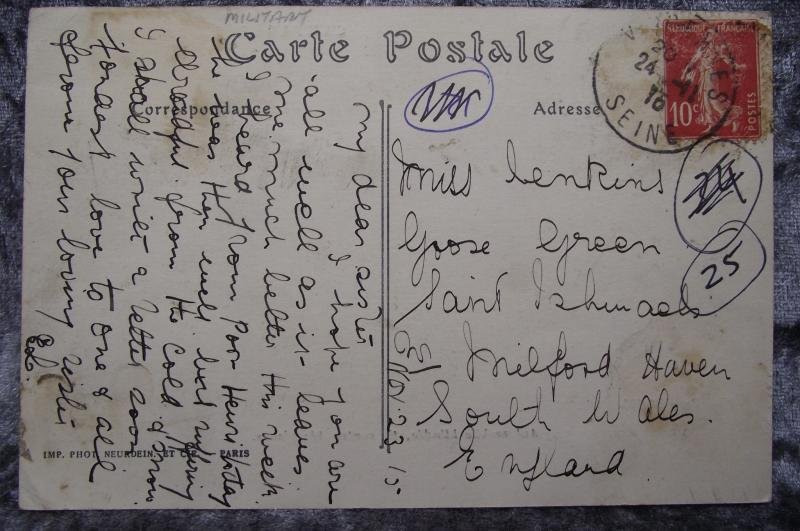 MILITANT
Carte Postale
Correspondance
Adresse
My dear sister
I hope you are
all well as it leaves
me much better this week
I heard from Poor Henri today
he was then well but suffering
dreadful from the cold & snow
I shall write a letter soon
Fondest love to one & all
from your loving sister
Ed.
Nov. 23 15
Miss Jenkins
Goose Green
Saint Ishmaels
Milford Haven
South Wales.
England.
25
REPUBLIQUE FRANÇAISE
10c
POSTES
SEINE
24
IMP. PHOT. NEURDEIN. ET CIE. - PARIS